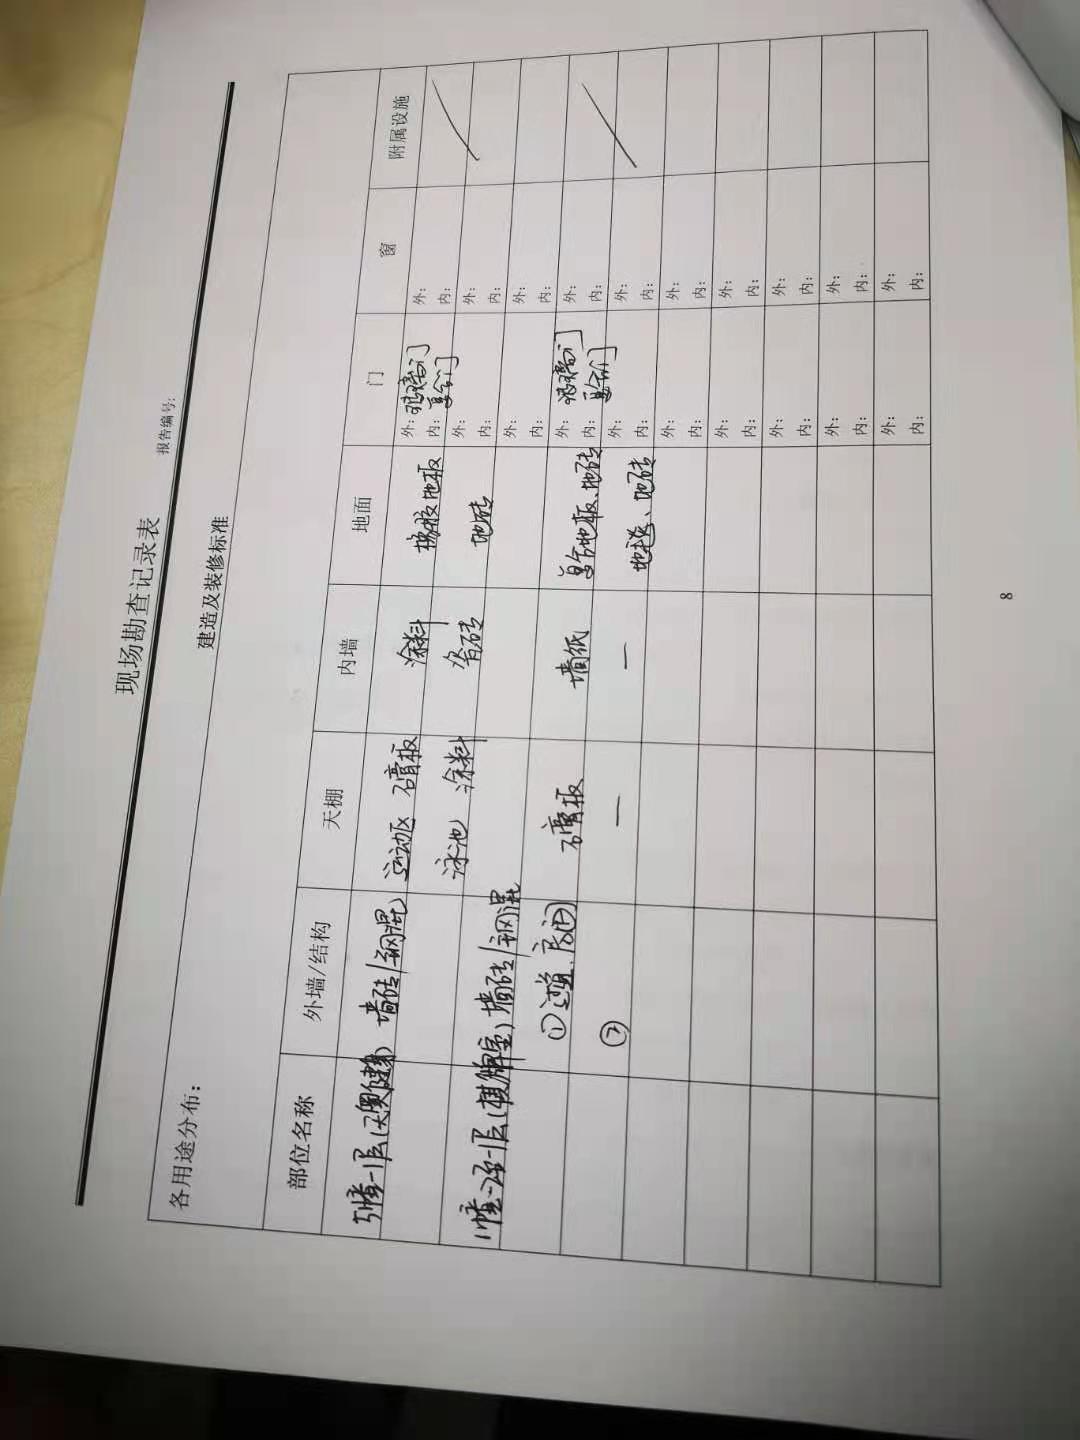 现场勘查记录表
报告编号:
建造及装修标准
各用途分布:
部位名称 外墙/结构 天棚 内墙 地面 门 窗 附属设施
5幢-1层(天奥健身) 墙砖/钢混 运动区 石膏板 涂料 橡胶地板 外: 玻璃门 内: 复合门 外: 内:
泳池 涂料 瓷砖 地砖 外: 内: 外: 内:
11幢-2层-1层(棋牌室) 墙砖/钢混 外: 内: 外: 内:
① 过道、房间 石膏板 墙纸 复合地板、地砖 外: 玻璃门 内: 复合门 外: 内:
② — — 地毯、地砖 外: 内: 外: 内:
外: 内: 外: 内:
外: 内: 外: 内:
外: 内: 外: 内:
外: 内: 外: 内:
外: 内: 外: 内:
8